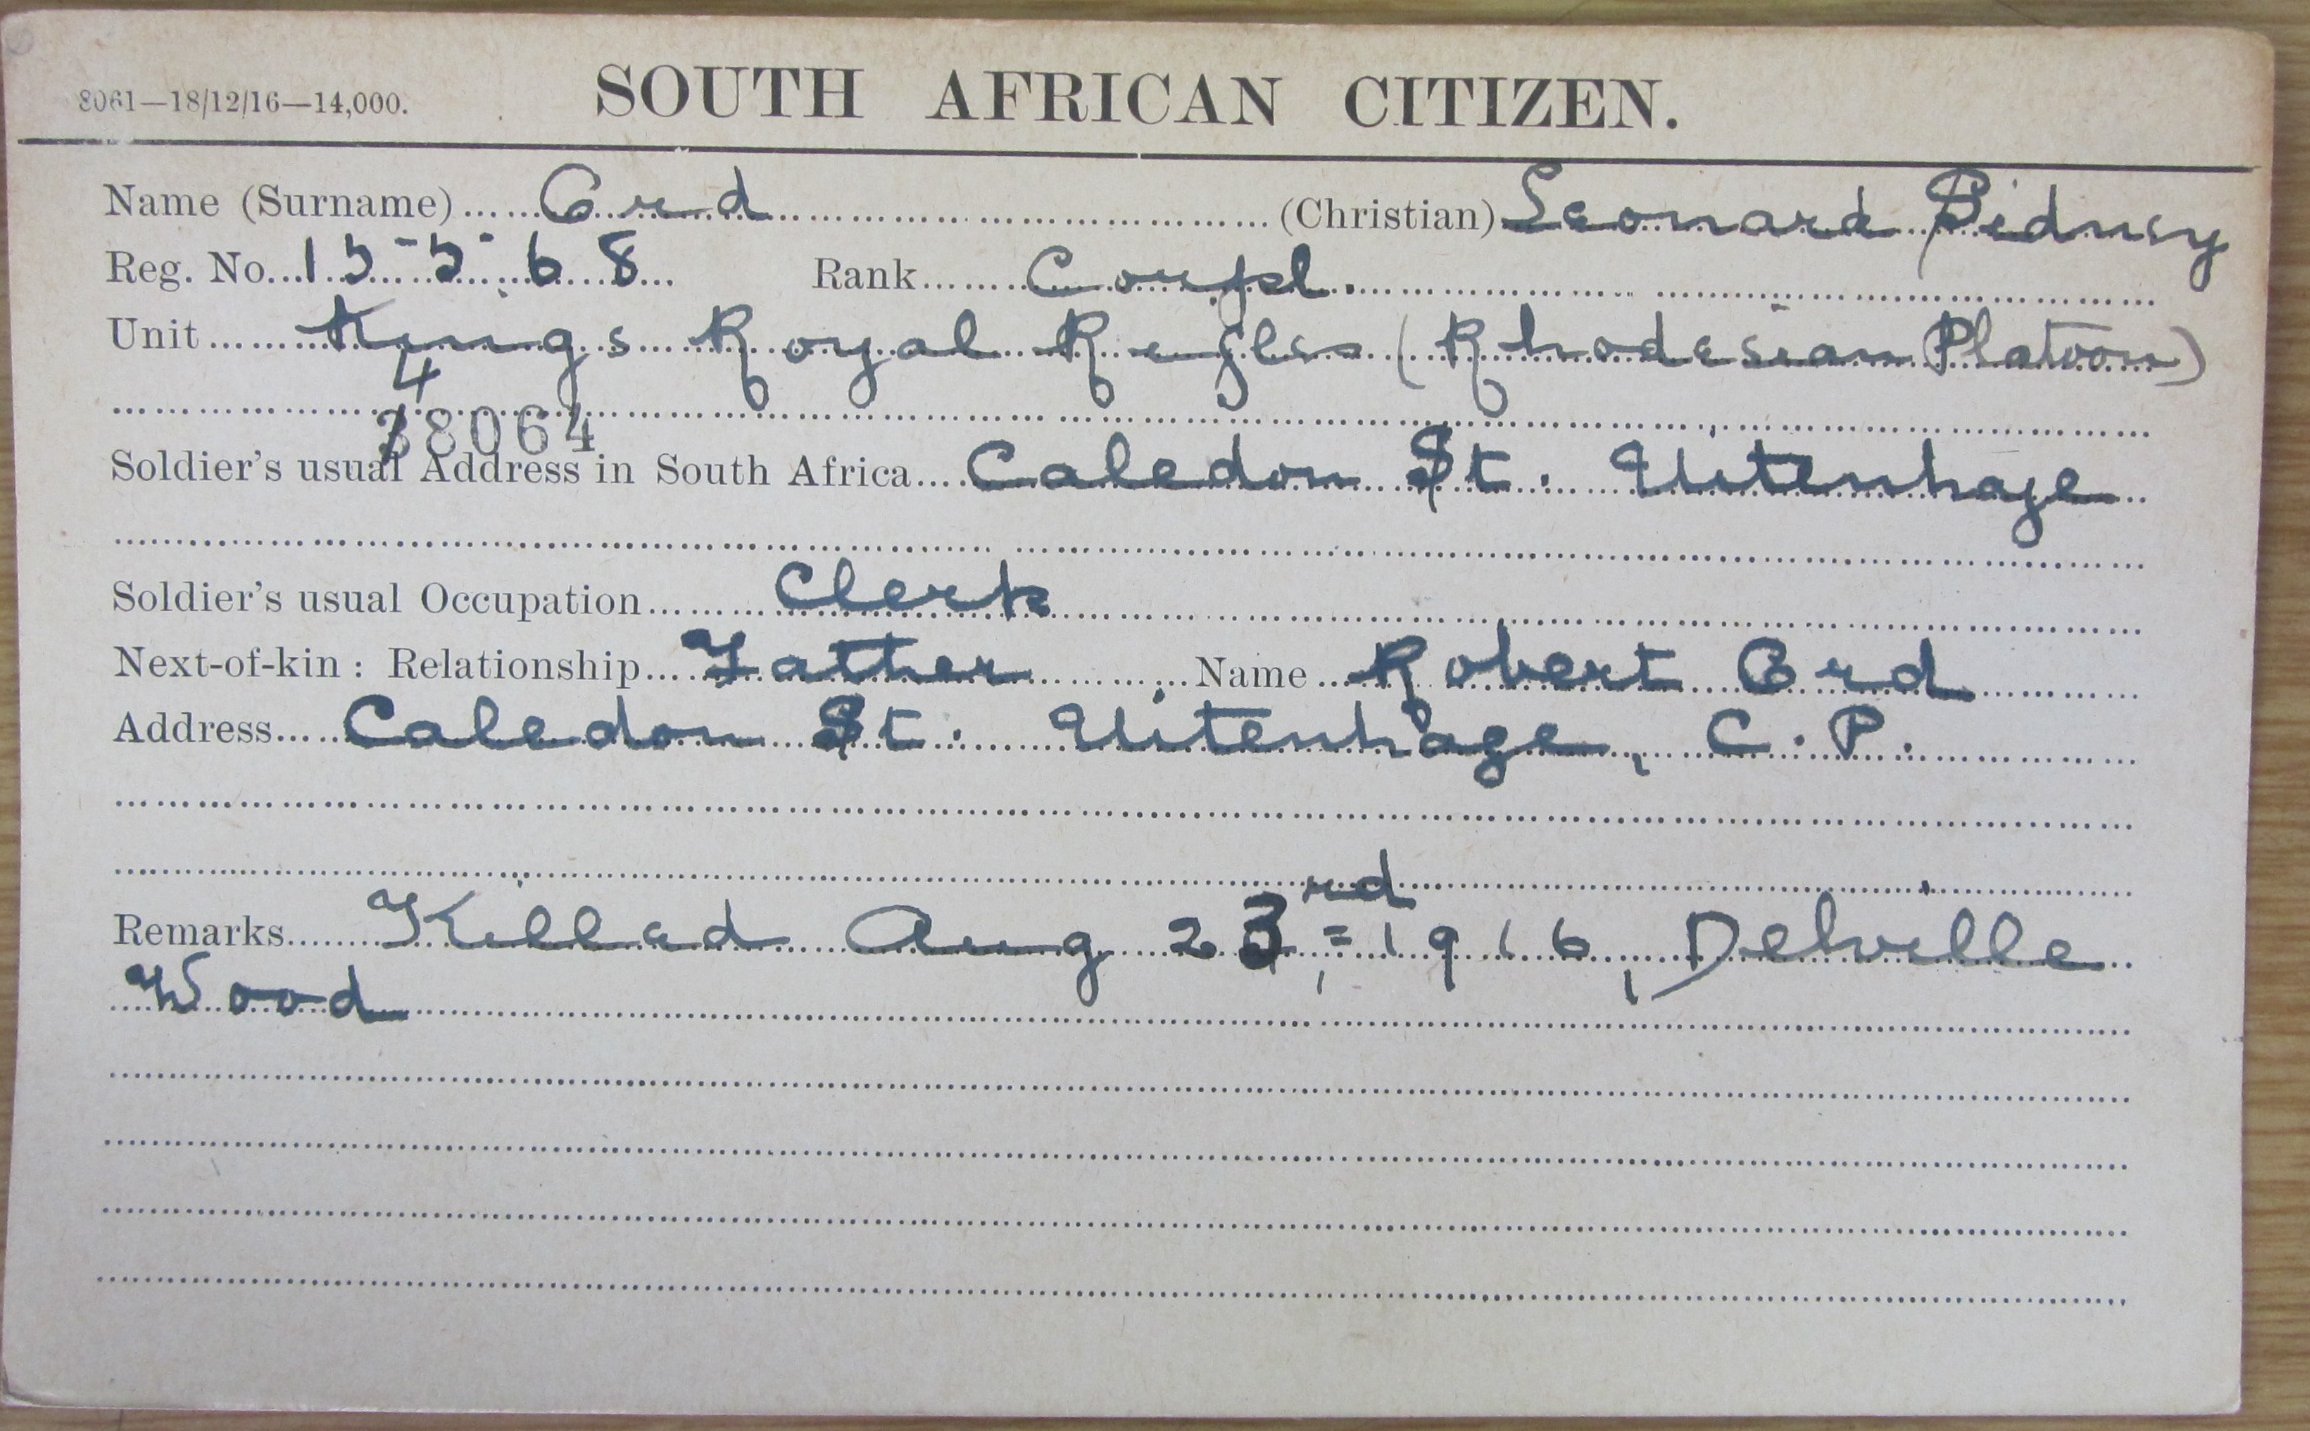 8061—18/12/16—14,000. SOUTH AFRICAN CITIZEN.
Name (Surname) Ord (Christian) Leonard Sidney
Reg. No. 15568 Rank Corpl.
Unit Kings Royal Rifles (Rhodesian Platoon)
4
38064
Soldier's usual Address in South Africa Caledon St. Uitenhage
Soldier's usual Occupation Clerk
Next-of-kin: Relationship Father Name Robert Ord
Address Caledon St. Uitenhage, C.P.
Remarks Killed Aug 23rd, 1916, Delville
Wood